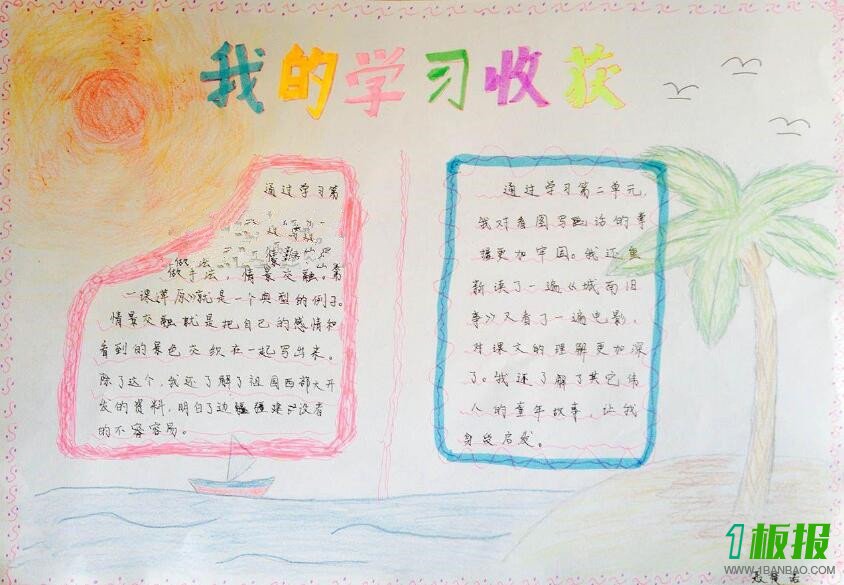 我的学习收获
通过学习第
做手法，情景交融。第
一课《草原》就是一个典型的例子。
情景交融就是把自己的感情和
看到的景色交织在一起写出来。
除了这个，我还了解了祖国西部大开
发的资料，明白了边疆建设者
的不容易。
通过学习第二单元，
我对看图写
握更加牢固。我还重
新读了一遍《城南旧
事》又看了一遍电影，
对课文的理解更加深
了。我还了解了其它伟
人的童年故事，让我
身受启发。
1板报
WWW.1BANBAO.COM